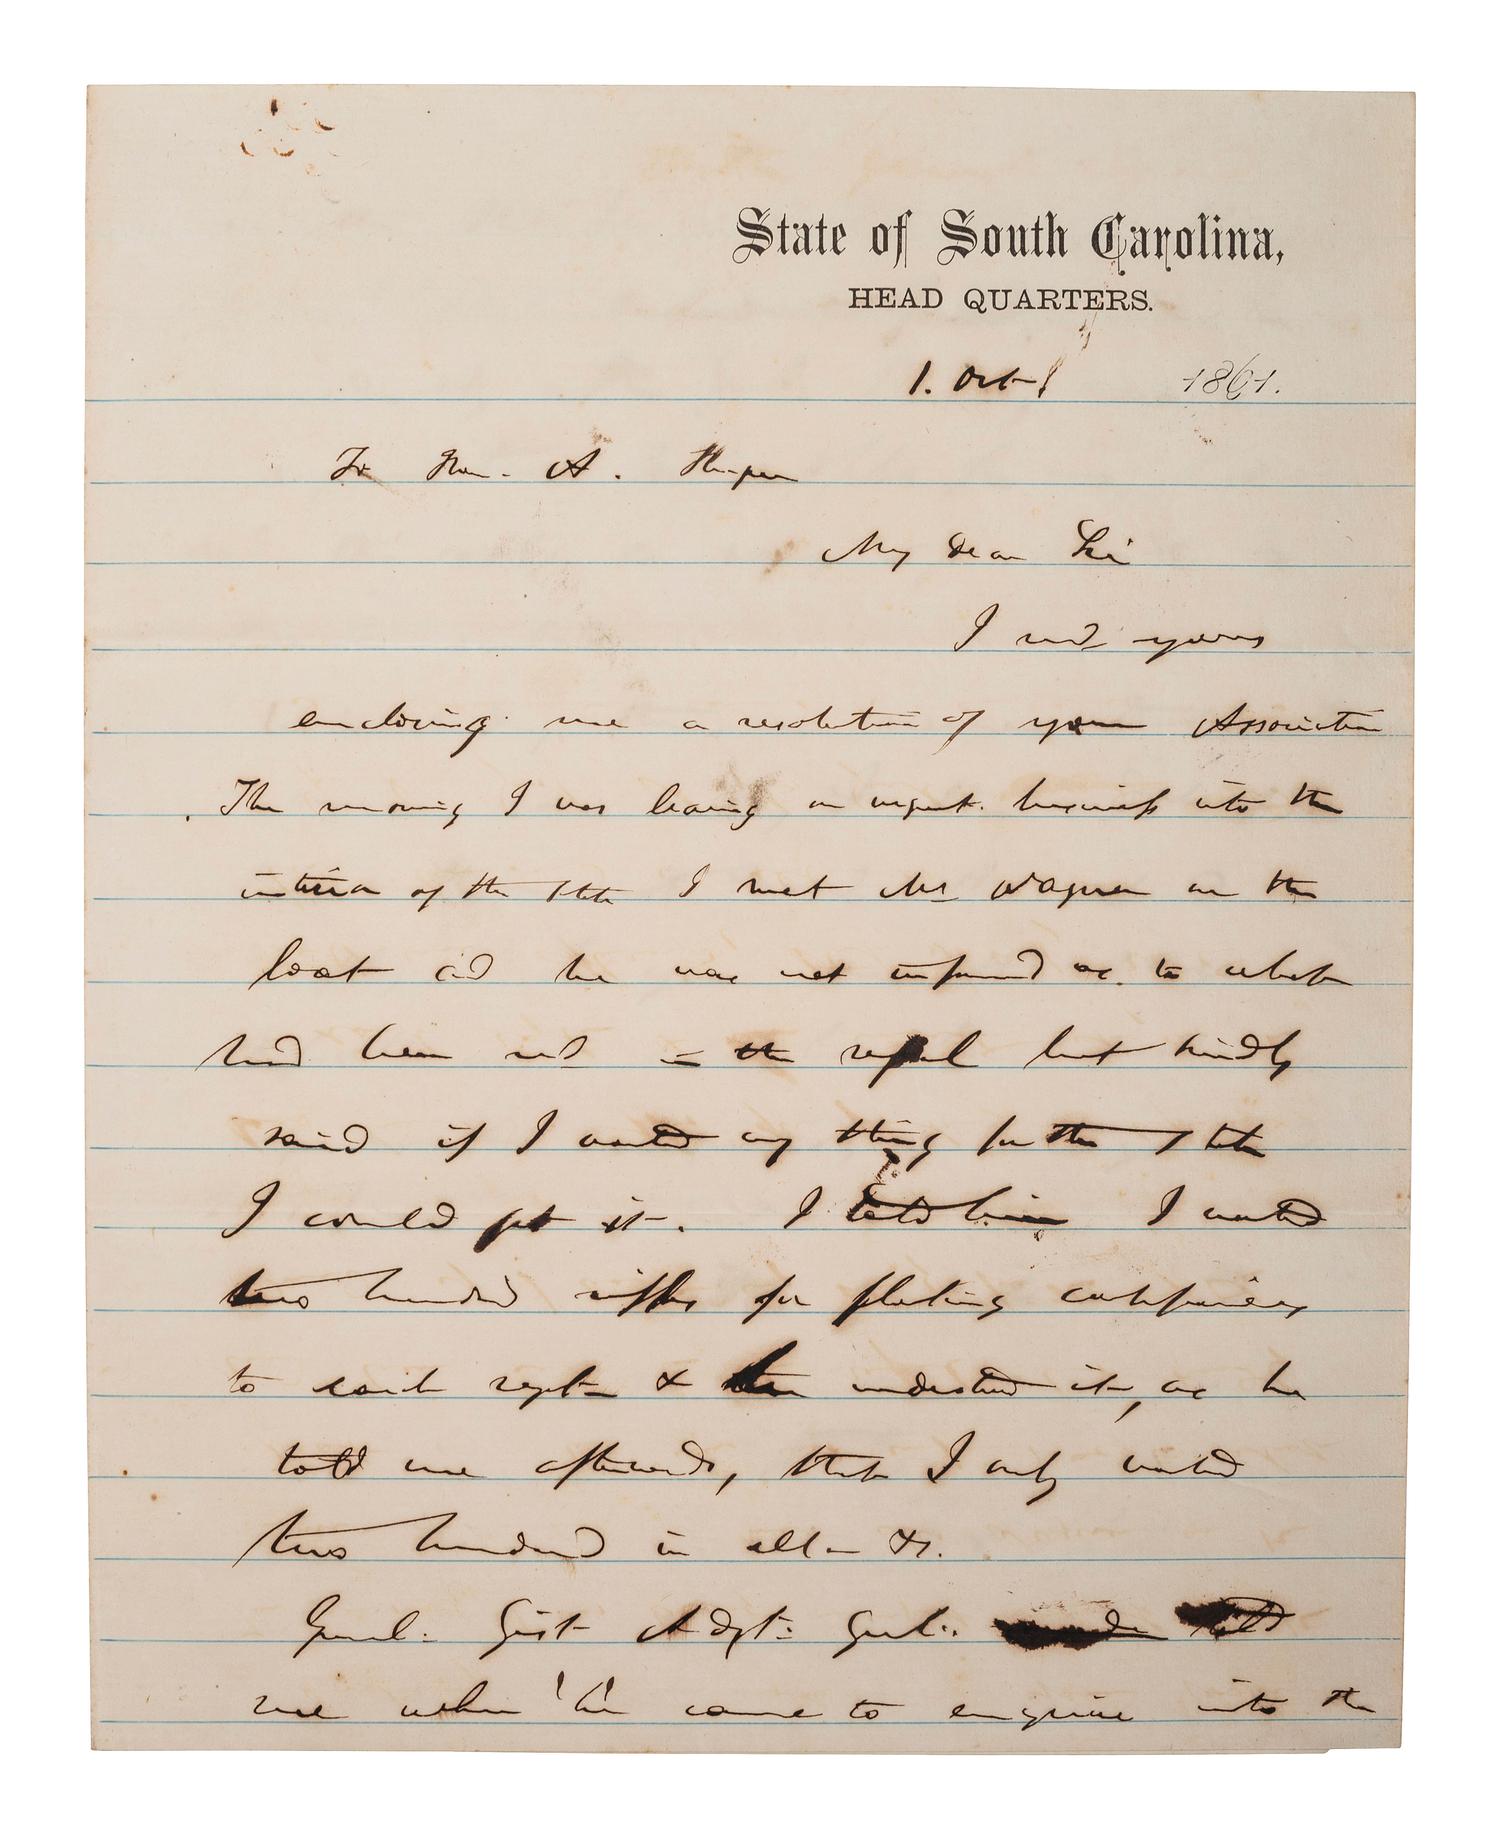 State of South Carolina,
HEAD QUARTERS.
1. Oct 1861.
To Hon. A.
My Dear Sir
I recd yours
enclosing me a resolution of your Association
The morning I was leaving on urgent business into the
interior of the State I met Mr Wagner on the
boat and he was not informed as to what
had been in the but kindly
said if I wanted any thing for the State
I could get it. I told him I wanted
two hundred rifles for flanking companies
to each regt & he understood it, as he
told me afterwards, that I only wanted
two hundred in all &c.
Genl. Gist Adjt. Genl. told
me when he came to enquire into the